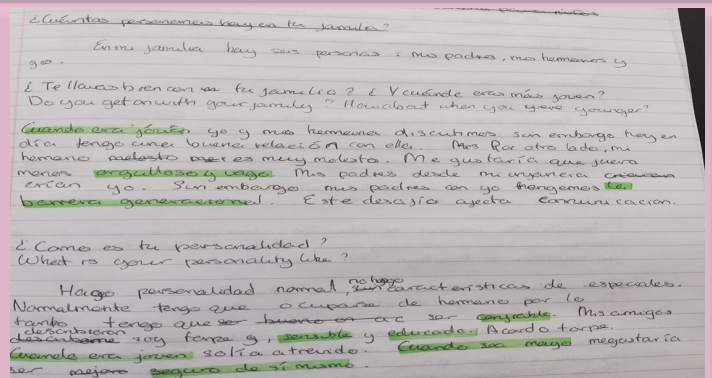 ¿Cuántas personas hay en tu familia?
En mi familia hay seis personas : mis padres, mis hermanos y
yo.
¿Te llevas bien con tu familia? ¿Y cuándo eras más joven?
Do you get on with your family? How about when you were younger?
Cuando era jóven yo y mis hermana discutimos sin embargo hoy en
día tengo una buena relación con ella. Por otro lado, mi
hermano molesto es muy molesto. Me gustaría que fuera
menos orgulloso y vago. Mis padres desde mi infancia
crian yo. Sin embargo mis padres con yo tengemos la
barrera generacional. Este desafío afecta comunicacion.
¿Como es tu personalidad?
What is your personality like?
Hago personalidad normal, no hago características de especiales.
Normalmente tengo que ocuparse de hermano por lo
tanto tengo que ser bueno en ser confiable. Mis amigos
describieron soy torpe y, sensible y educado. Acordo torpe.
Cuando era joven solía atrevido. Cuando sea mayo megustaría
ser mejoro seguro de sí mismo.